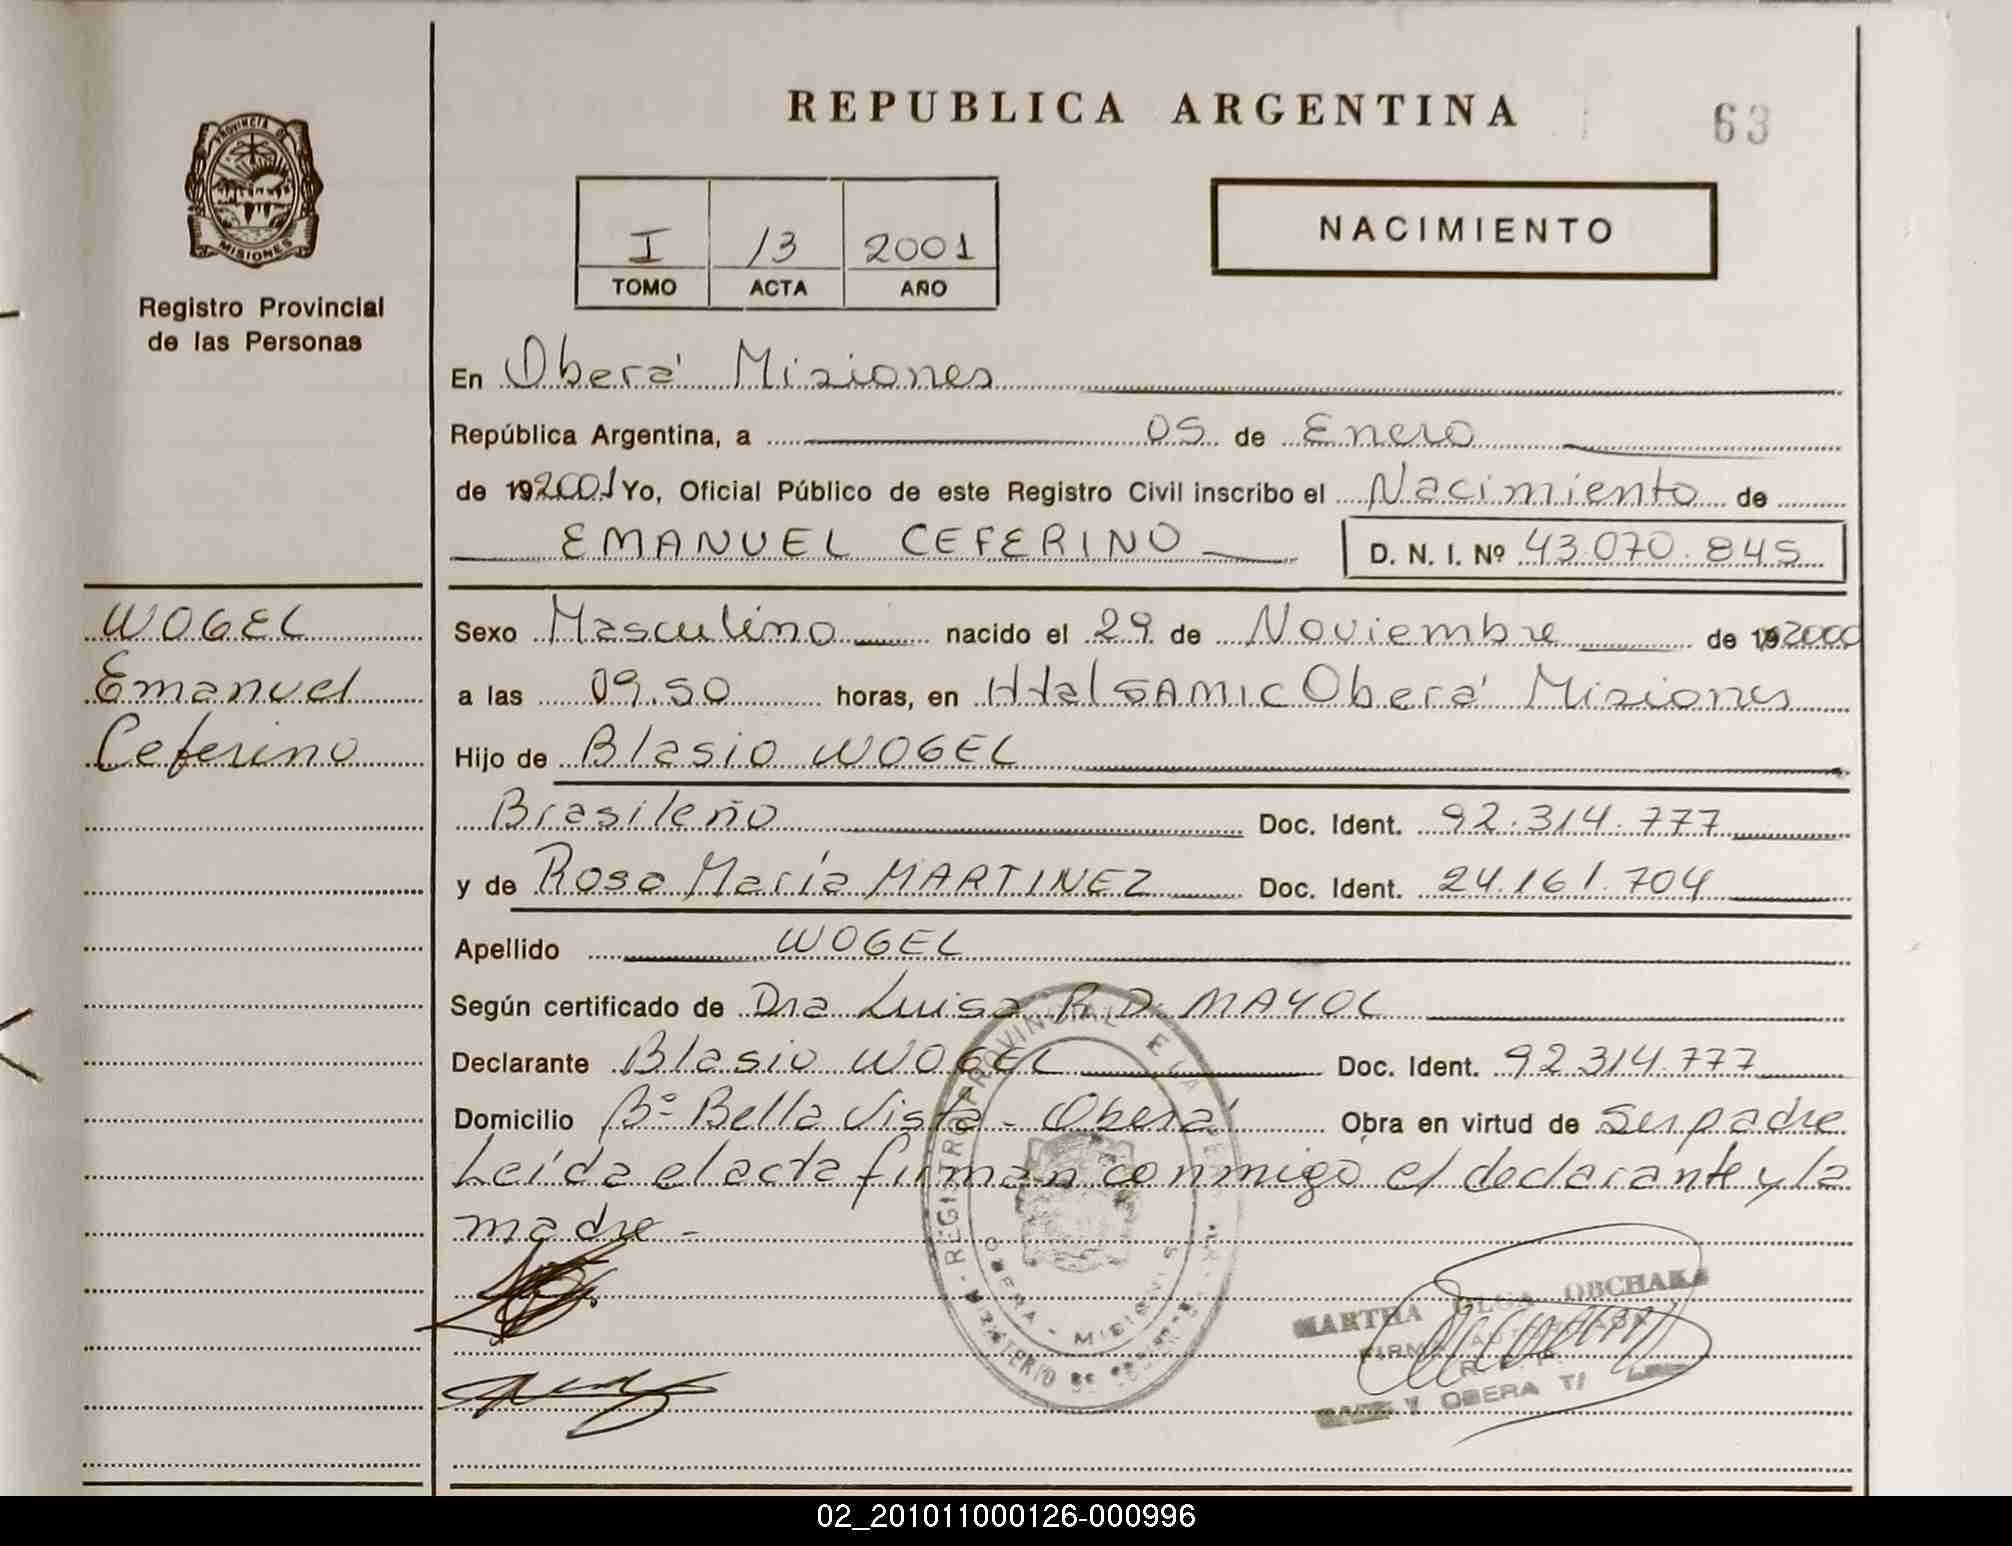 REPUBLICA ARGENTINA
63
PROVINCIA DE
MISIONES
Registro Provincial
de las Personas
I 13 2001
TOMO ACTA AÑO
NACIMIENTO
En Oberá Misiones
República Argentina, a 05 de Enero
de 192001 Yo, Oficial Público de este Registro Civil inscribo el Nacimiento de
EMANUEL CEFERINO D. N. I. Nº 43.070.845
WOGEL
Emanuel
Ceferino
Sexo Masculino nacido el 29 de Noviembre de 192000
a las 09.50 horas, en Htal SAMIC Oberá Misiones
Hijo de Blasio WOGEL
Brasileño Doc. Ident. 92.314.777
y de Rosa María MARTINEZ Doc. Ident. 24.161.704
Apellido WOGEL
Según certificado de Dra Luisa R. D. MAYOL
Declarante Blasio WOGEL Doc. Ident. 92.314.777
Domicilio Bº Bella Vista - Oberá Obra en virtud de ser padre
Leída el acta firman conmigo el declarante y la
madre -
REGISTRO PROVINCIAL
MINISTERIO DE
OBERA - MISIONES
MARTHA OLGA OBCHAKA
FIRMA AUTORIZADA
OBERA
02_201011000126-000996